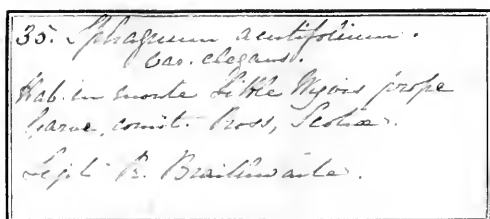 35. Sphagnum acutifolium.
var. elegans.
Hab. in monte Little Wyvis prope
Garve, comit. Ross, Scotiæ.
Legit R. Braithwaite.